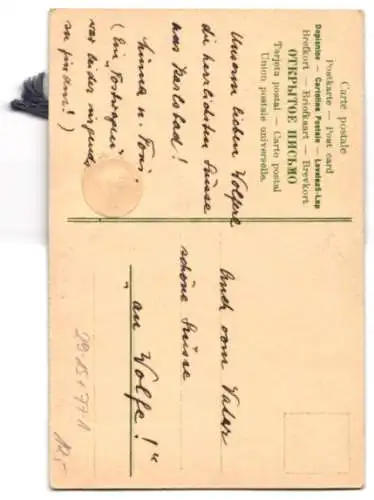 Carte postale
Postkarte — Post card
Dopisnice — Cartolina Postale — Levelezö-Lap
Brefkort — Briefkaart — Brevkort
ОТКРЫТОЕ ПИСЬМО
Tarjeta postal — Carto postal
Union postale universelle.
Unserm lieben Wolferl
die herrlichsten Grüsse
aus Karlsbad!
Minna u. Toni.
(Ein "Postwagen"
war leider nirgends
zu finden!)
Auch vom Vater
schöne Grüsse
"an Wolfe!"